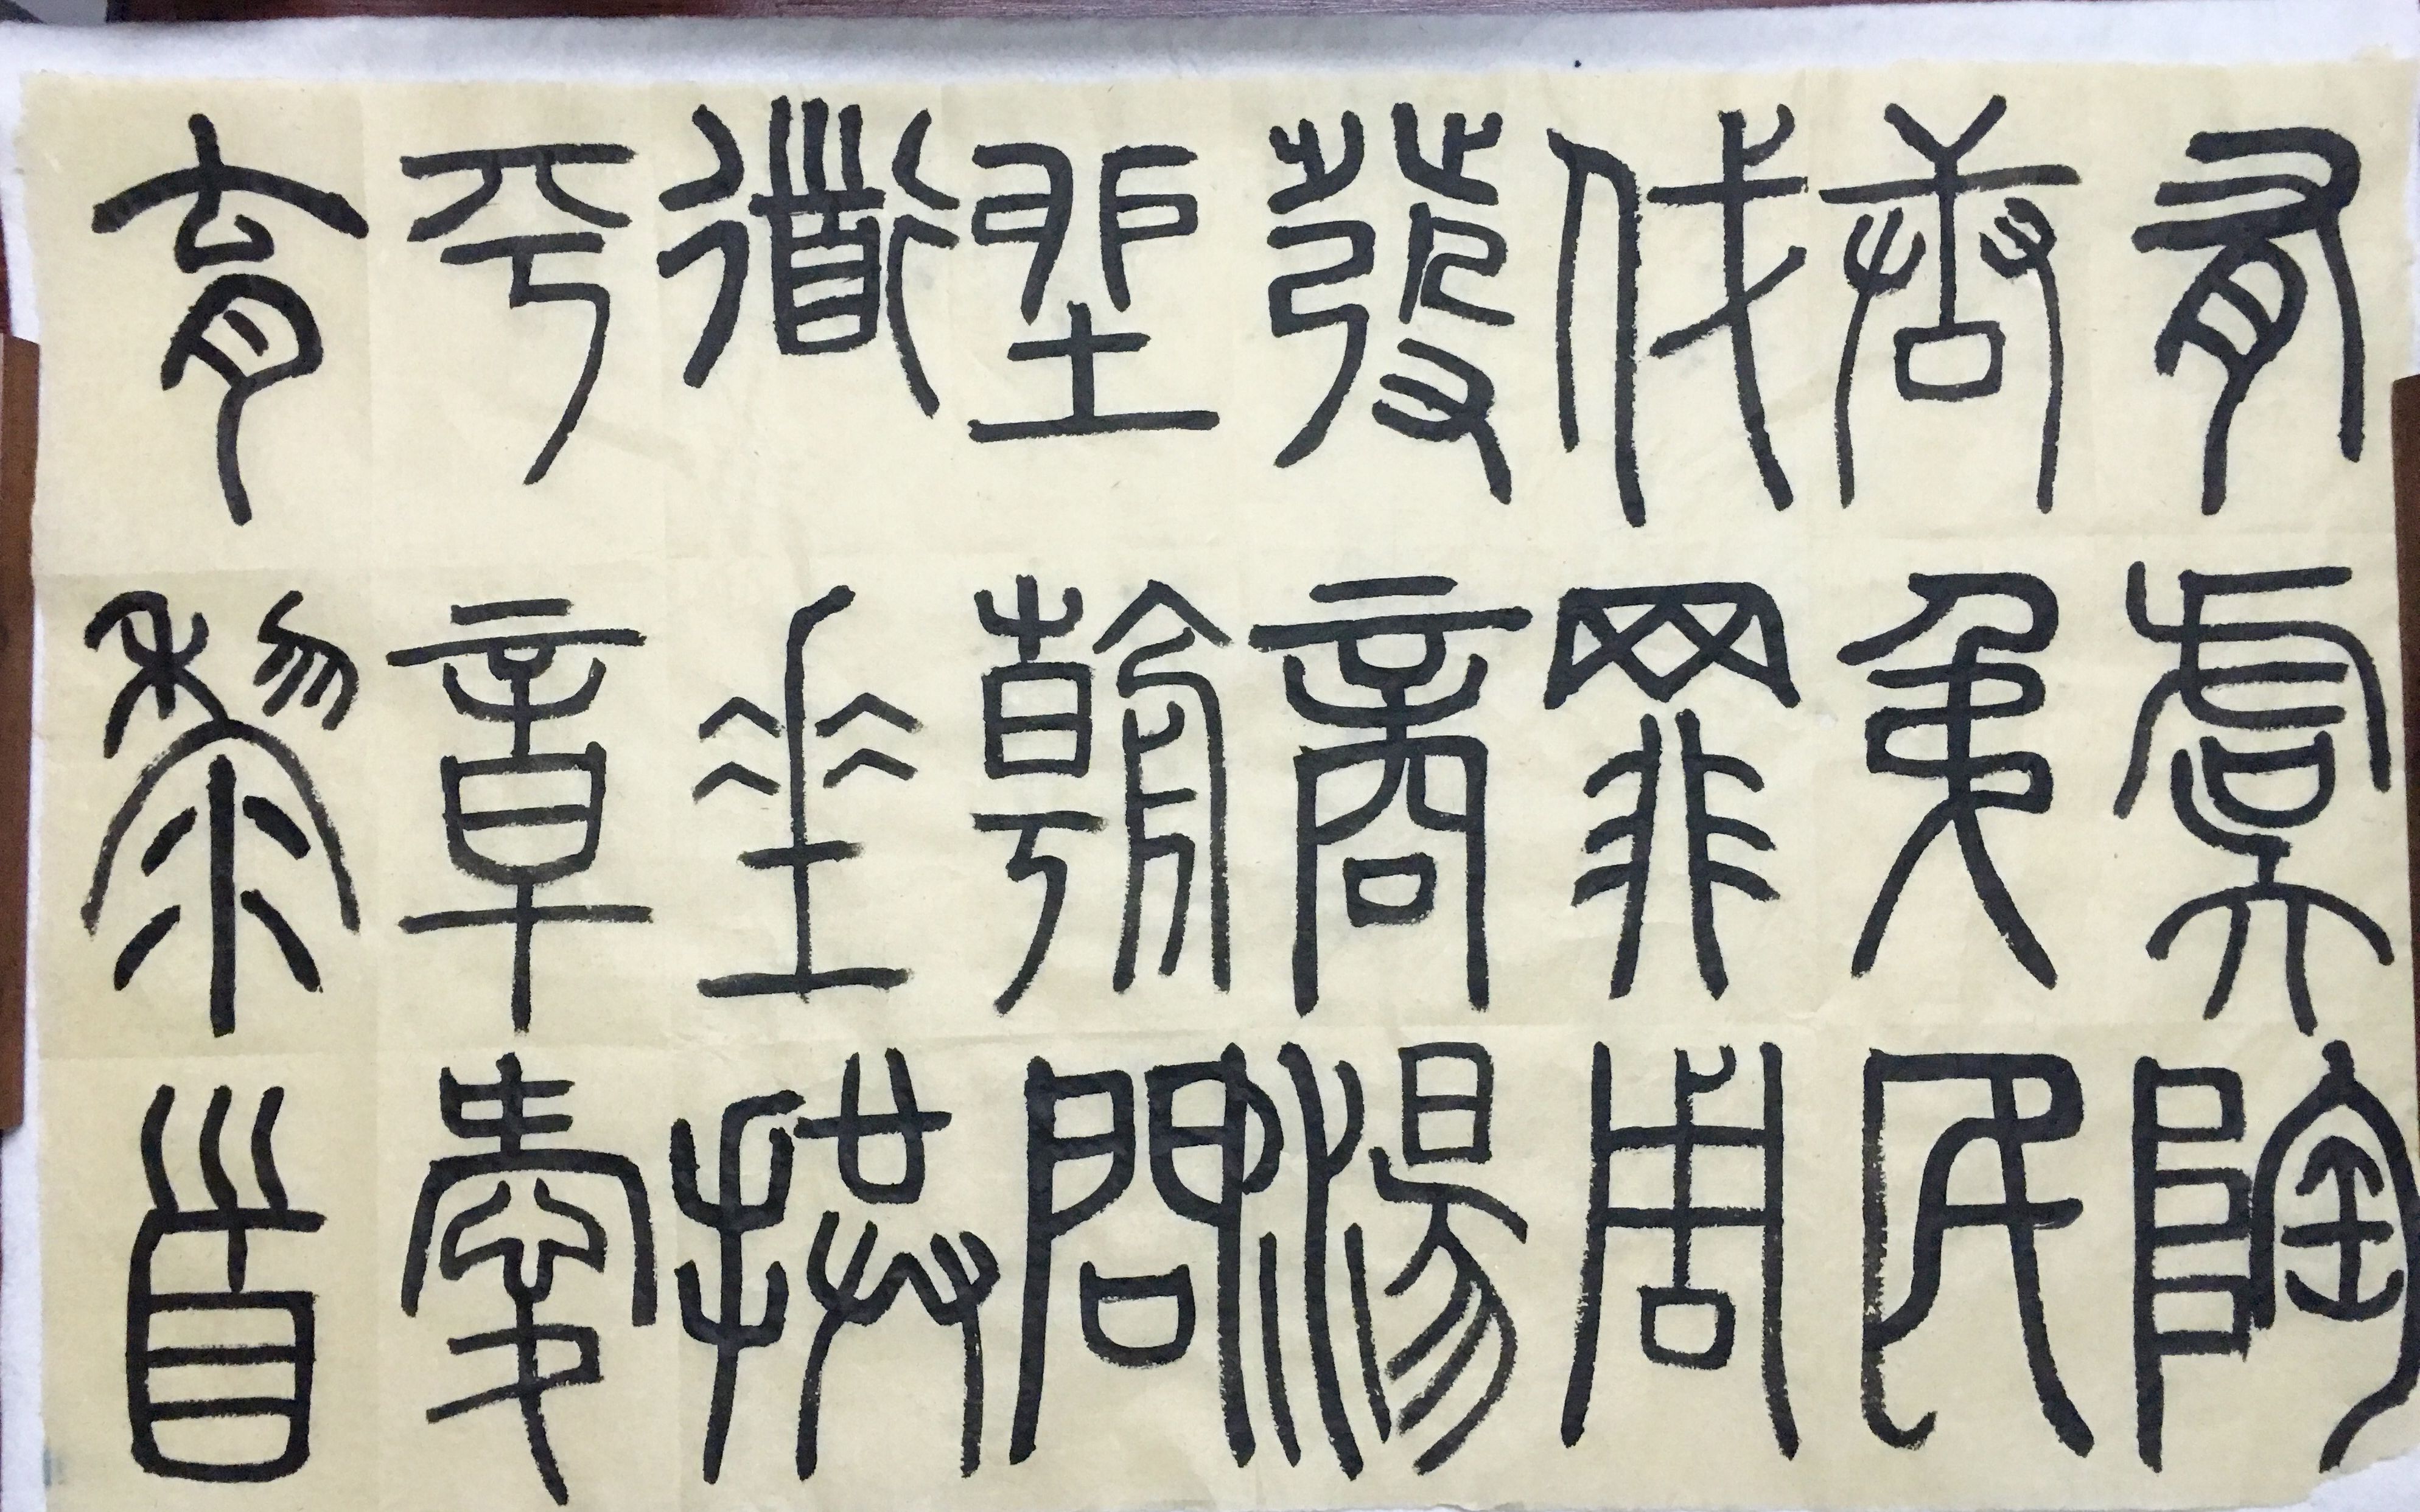 有虞陶
唐弔民
伐罪周
發商湯
坐朝問
道垂拱
平章愛
育黎首